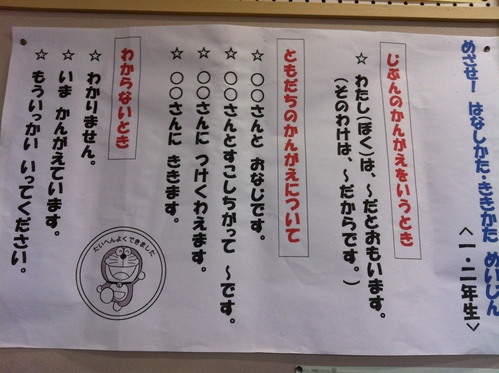 めざせ! はなしかた・ききかた めいじん
<一・二年生>
じぶんのかんがえをいうとき
☆ わたし(ぼく)は、~だとおもいます。
(そのわけは、~だからです。)
ともだちのかんがえについて
☆ ○○さんと おなじです。
☆ ○○さんとすこしちがって ~です。
☆ ○○さんに つけくわえます。
☆ ○○さんに ききます。
わからないとき
☆ わかりません。
☆ いま かんがえています。
☆ もういっかい いってください。
たいへんよくできました